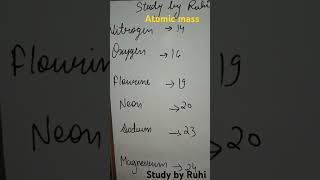 Study by Ruhi
Atomic mass
Nitrogen → 14
Oxygen → 16
Flourine → 19
Neon → 20
Sodium → 23
Magnesium → 24
Study by Ruhi
Flourine
→ 19
Neon
→ 20